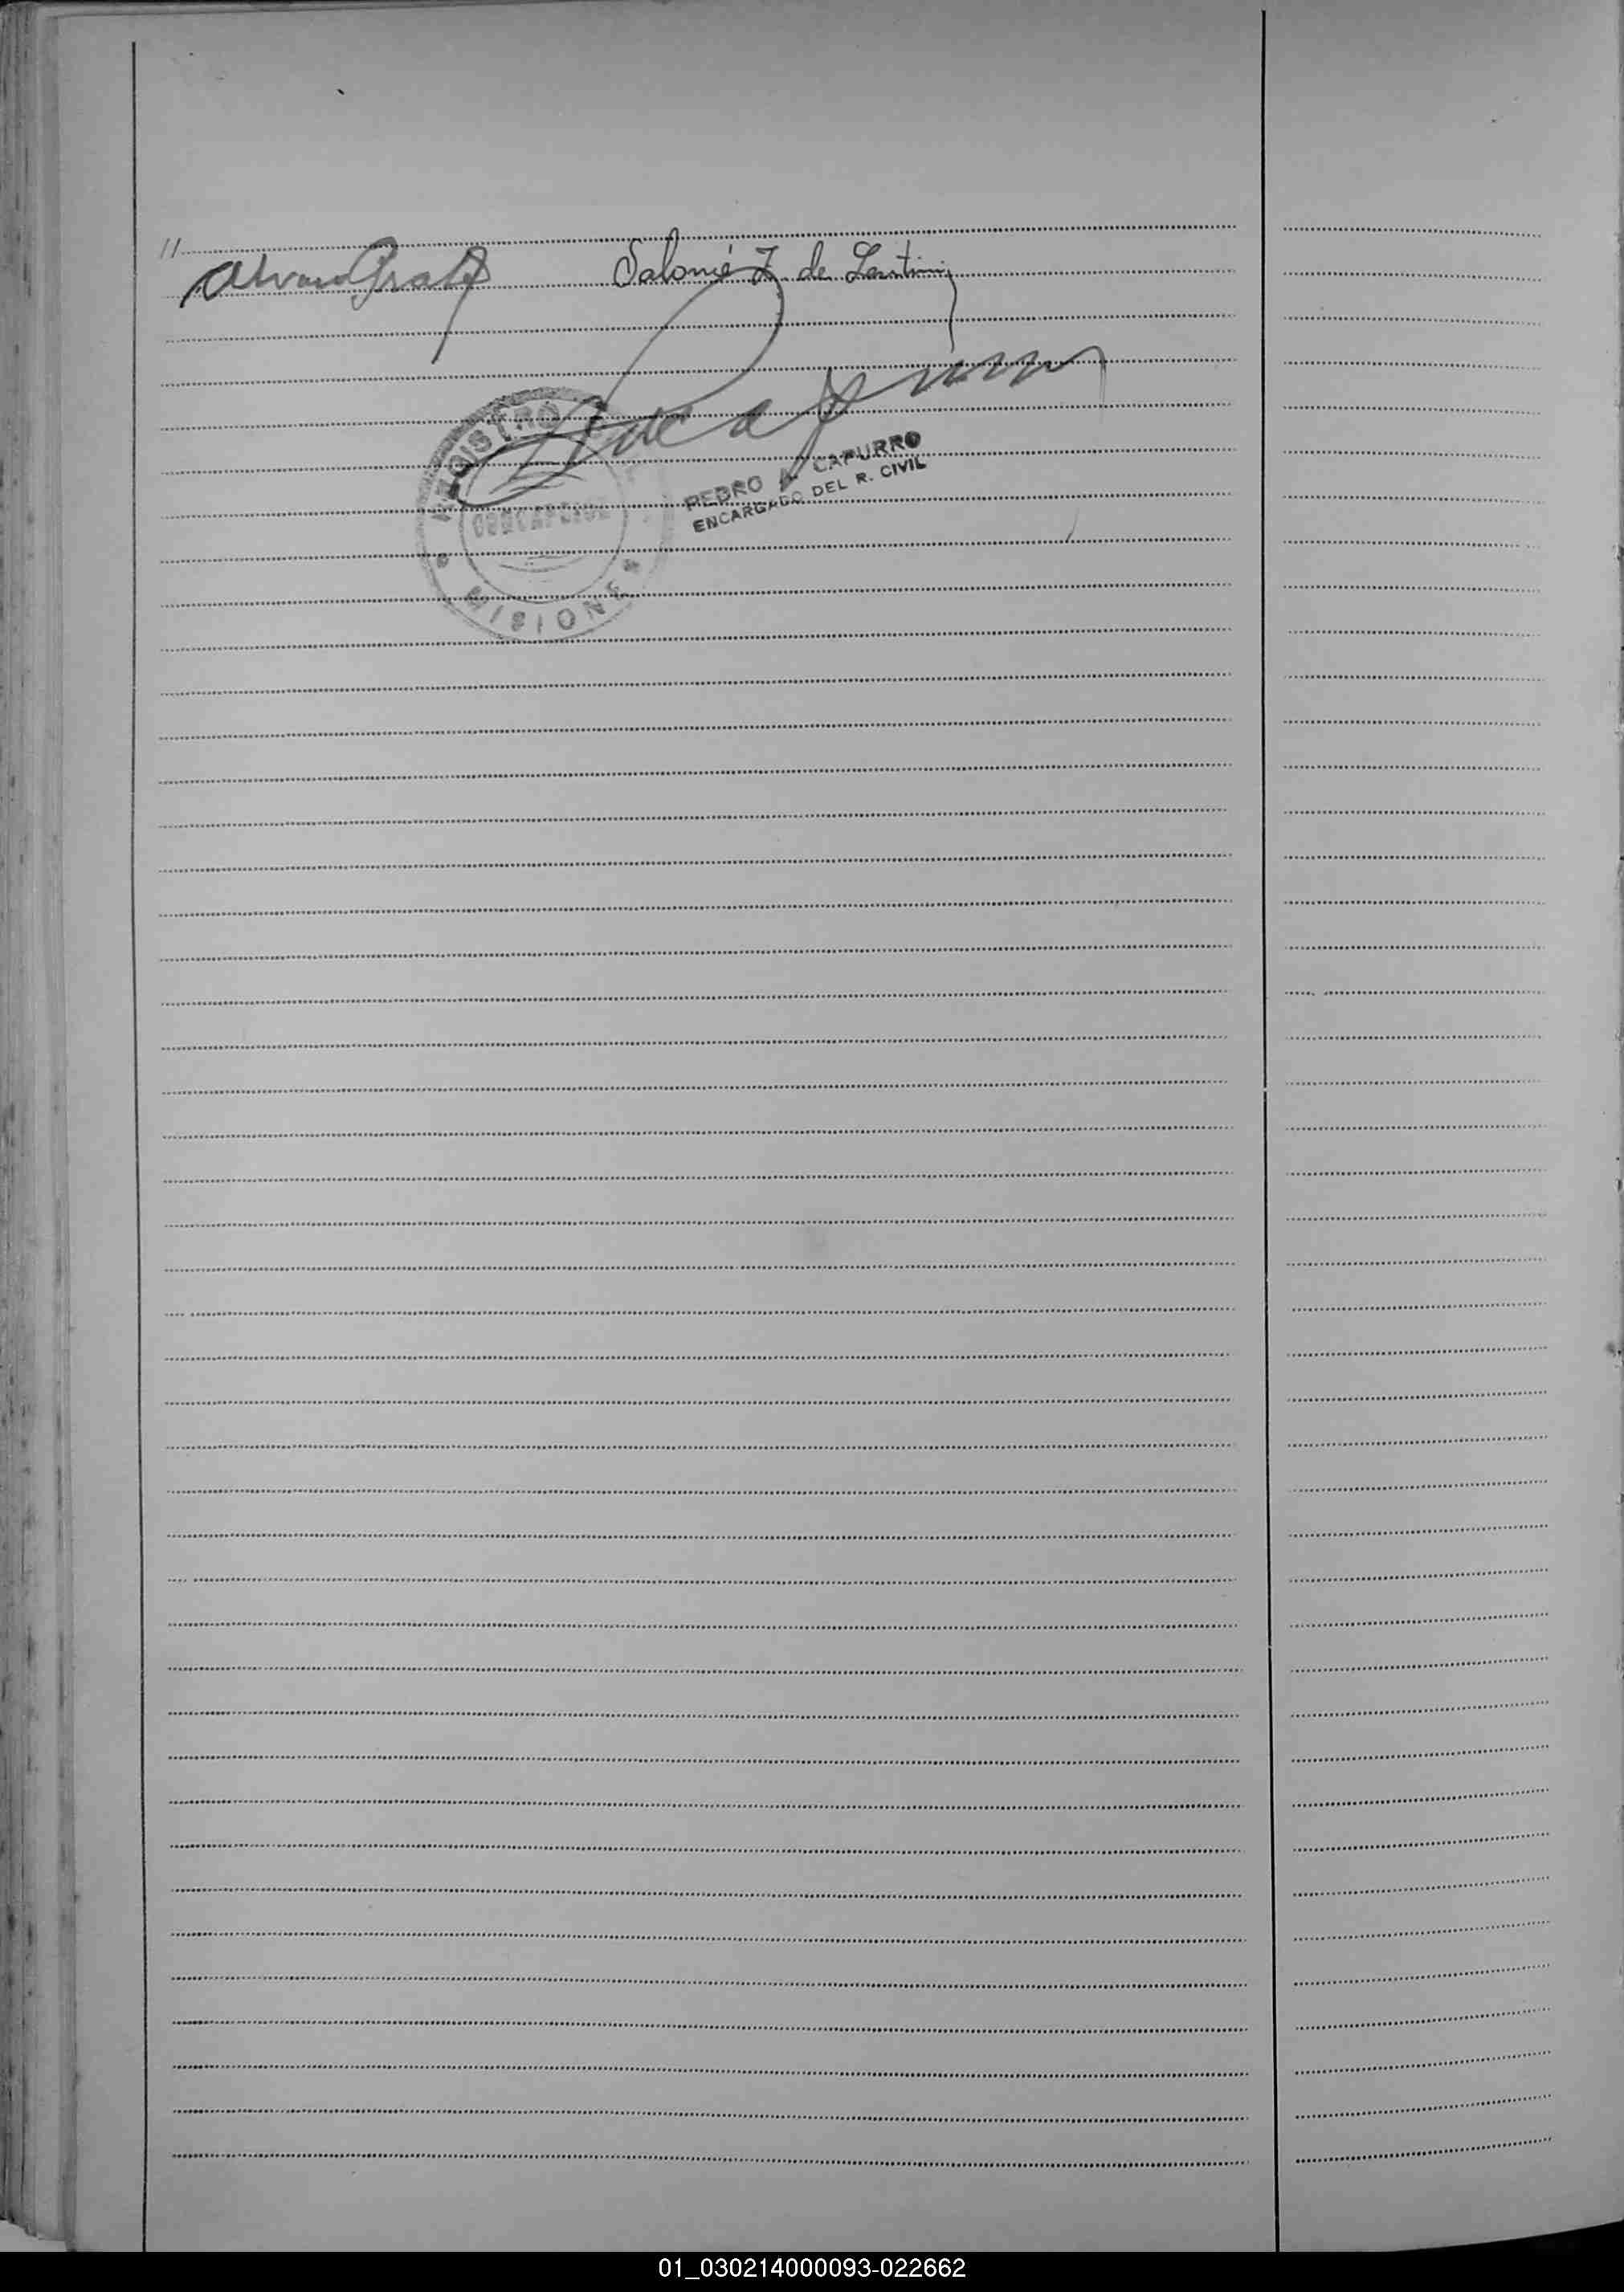 //
Alvaro Prates Salomé Z. de Lentini
PCapurro
REGISTRO
CONCEPCION
MISIONES
PEDRO A. CAPURRO
ENCARGADO DEL R. CIVIL
01_030214000093-022662